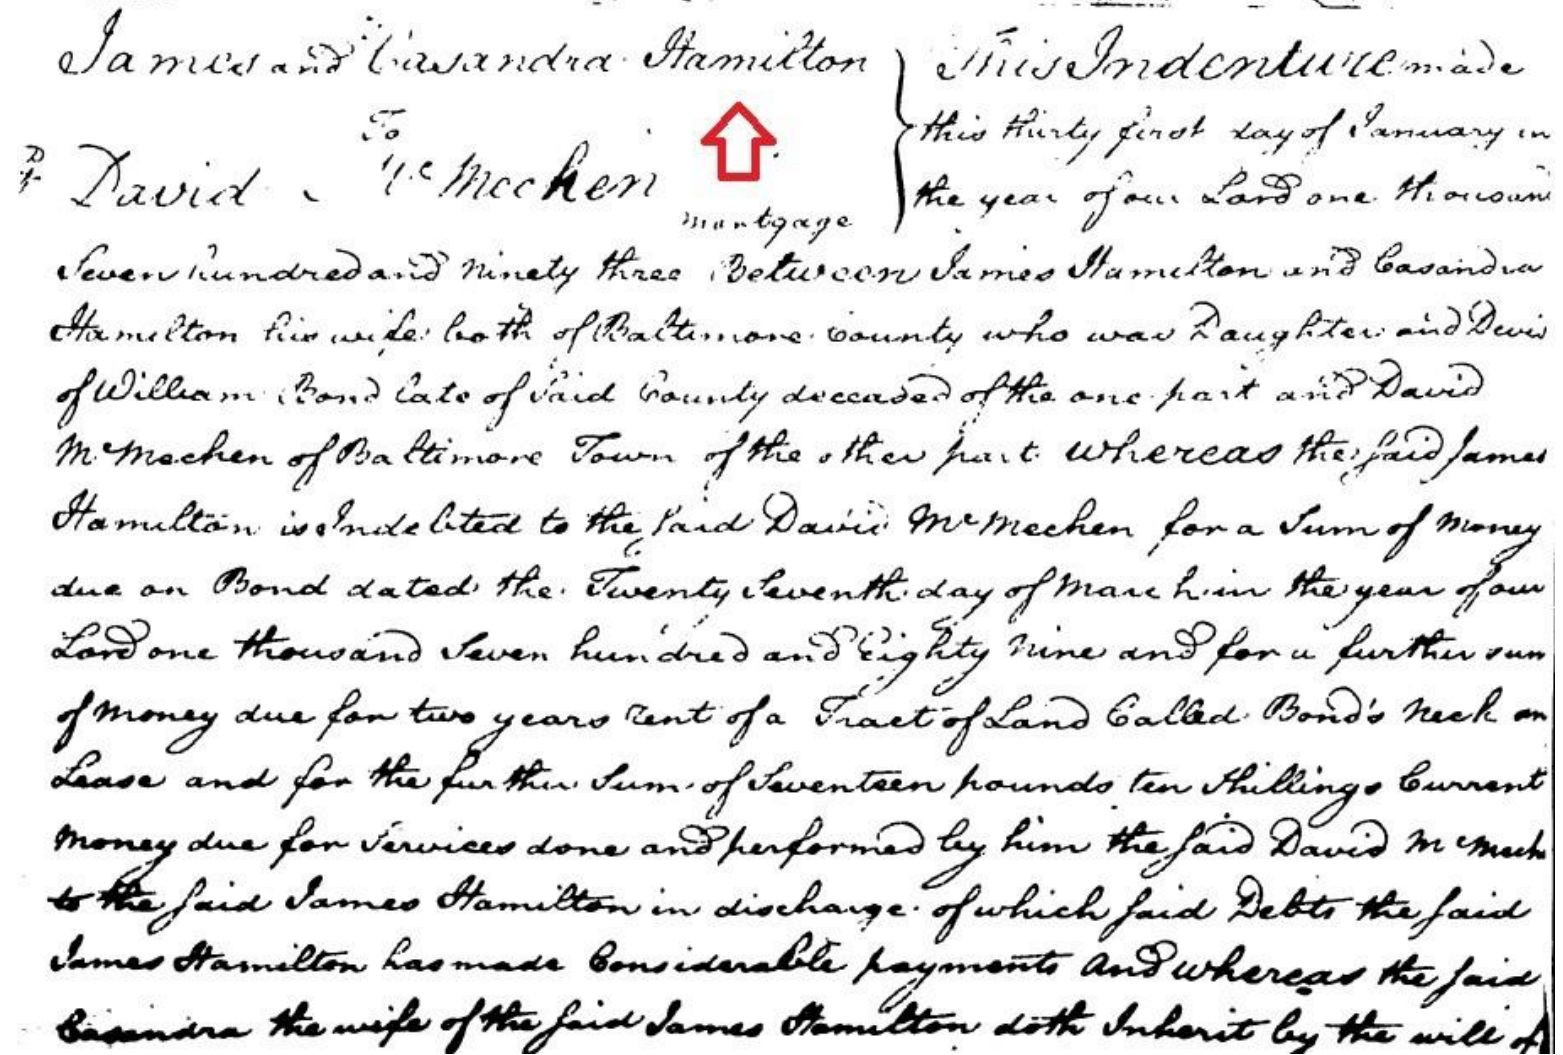 James and Casandra Hamilton
To
David McMechen
mortgage
This Indenture made
this thirty first day of January in
the year of our Lord one thousand
Seven hundred and ninety three Between James Hamilton and Casandra
Hamilton his wife both of Baltimore County who was Daughter and Devis
of William Bond late of Said County deceased of the one part and David
McMechen of Baltimore Town of the other part whereas the said James
Hamilton is Indebted to the said David McMechen for a Sum of money
due on Bond dated the Twenty Seventh day of March in the year of our
Lord one thousand Seven hundred and Eighty Nine and for a further sum
of money due for two years rent of a Tract of Land Called Bond's Neck on
Lease and for the further Sum of Seventeen pounds ten Shillings Current
money due for Services done and performed by him the said David McMech
to the said James Hamilton in discharge of which said Debts the said
James Hamilton has made Considerable payments and whereas the said
Casandra the wife of the said James Hamilton doth Inherit by the will of